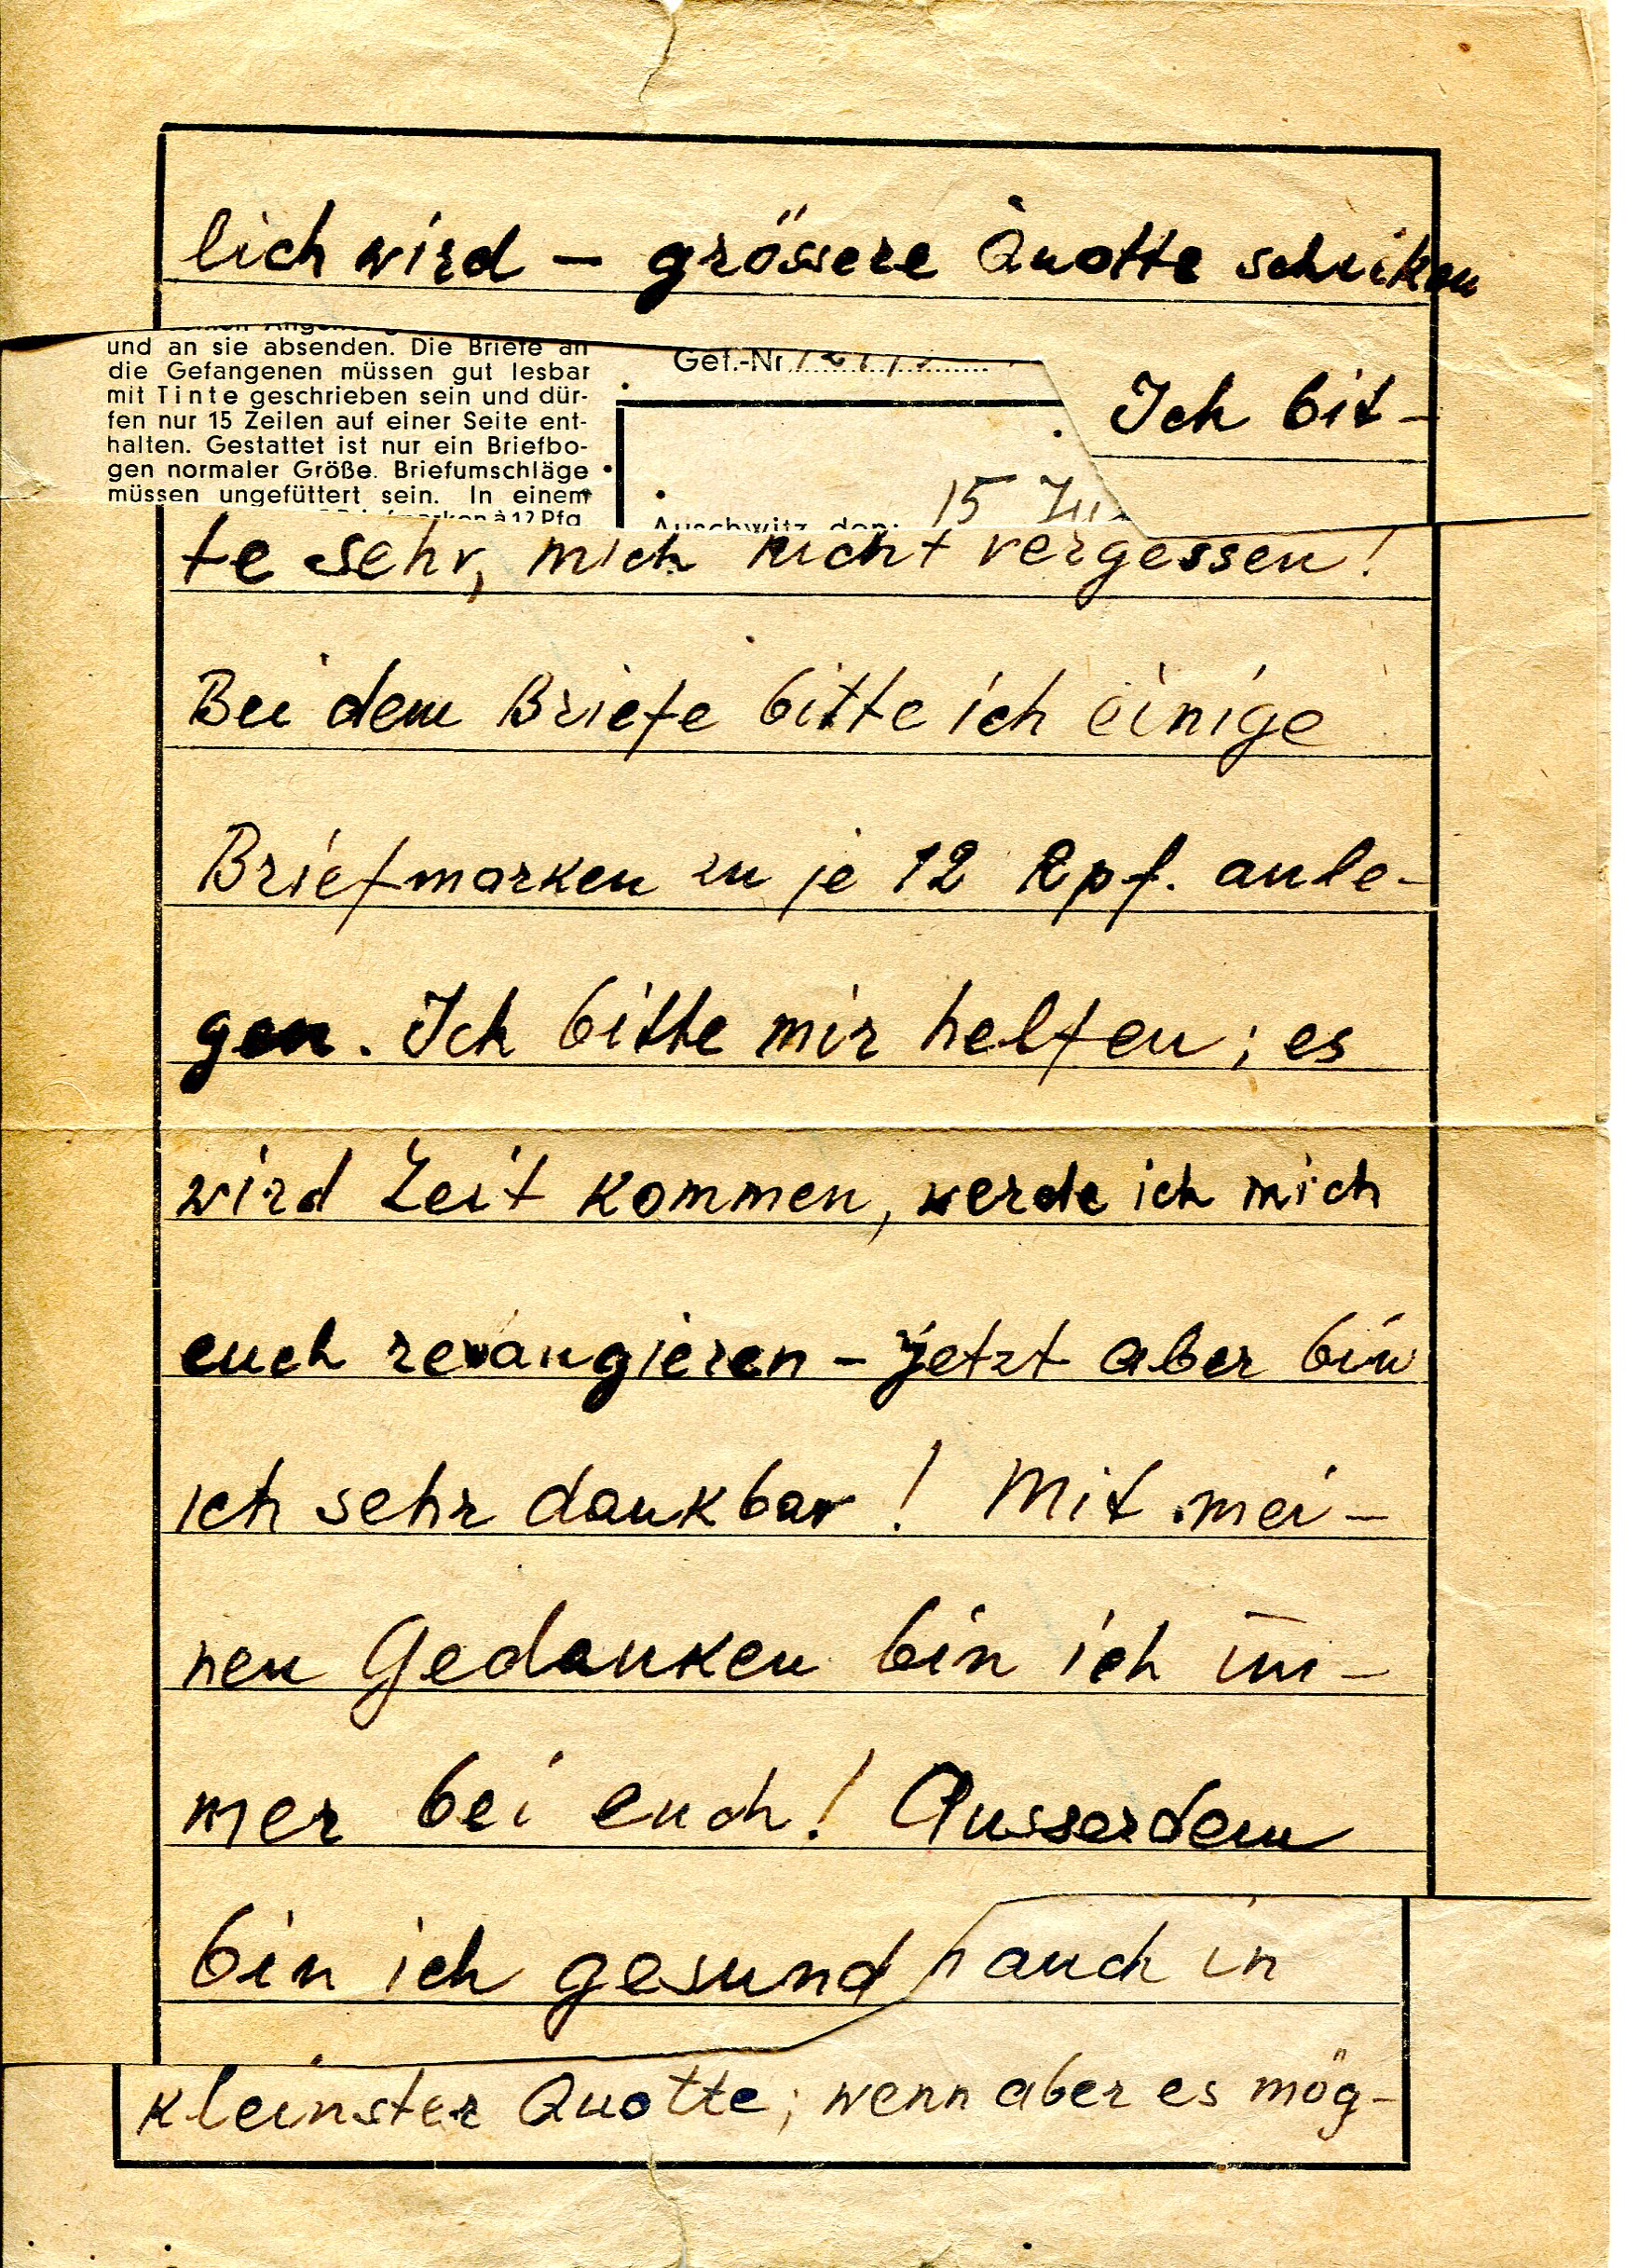 lich wird – grössere Quotte schriken
und an sie absenden. Die Briefe an
die Gefangenen müssen gut lesbar
mit Tinte geschrieben sein und dür-
fen nur 15 Zeilen auf einer Seite ent-
halten. Gestattet ist nur ein Briefbo-
gen normaler Größe. Briefumschläge
müssen ungefüttert sein. In einem
à 12 Pfg
Gef.-Nr.
Auschwitz, den: 15
. Ich bit-
te sehr, mich nicht vergessen!
Bei dem Briefe bitte ich einige
Briefmarken zu je 12 Rpf. anle-
gen. Ich bitte mir helfen; es
wird Zeit kommen, werde ich mich
euch revangieren – jetzt aber bin
ich sehr dankbar! Mit mei-
nen Gedanken bin ich im-
mer bei euch! Ausserdem
bin ich gesund auch in
kleinster Quotte; wenn aber es mög-